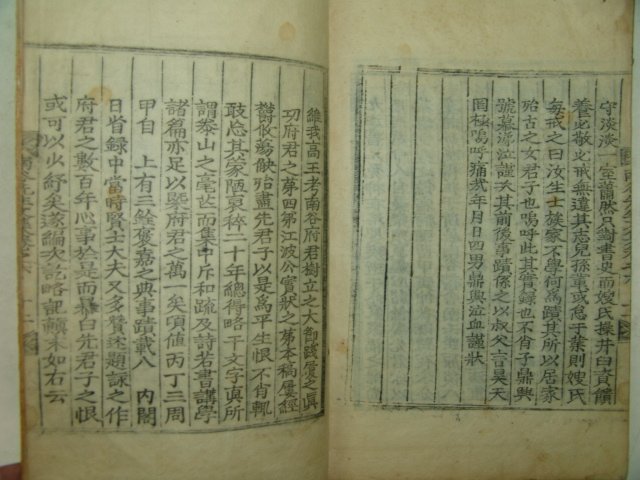 守淡淡一室蕭然只對書史而嫂氏操井臼資饋
養必敬必戒無違其志兒孫輩或怠子業則嫂氏
每戒之曰汝生士族家不學何爲蹟其所以居家
殆古之女君子也嗚呼此其實錄也不肖子鼎興
號慕滲泣謹次其前後事蹟係之以叔父言昊天
罔極嗚呼痛哉年月日四男鼎興泣血謹狀
維我高王考南谷府君樹立之大節踐
功府君之第四第江波公實狀之第本稿屢經
鬱攸蕩殘殆盡先君子以是爲平生恨不肖輒
敢忘其蒙陋裒稡二十年總得略干文字眞所
謂泰山之毫芒而集中斥和疏及詩若書講學
諸篇亦足以槩府君之萬一矣頃値丙丁三周
甲自 上有三銓褒嘉之典事蹟載 內閣
日省錄中當時賢士大夫又多贊述題詠之作
府君之數百年心事於是而暴白先君子之恨
或可以少紓矣遂編次訖略記顚末如右云